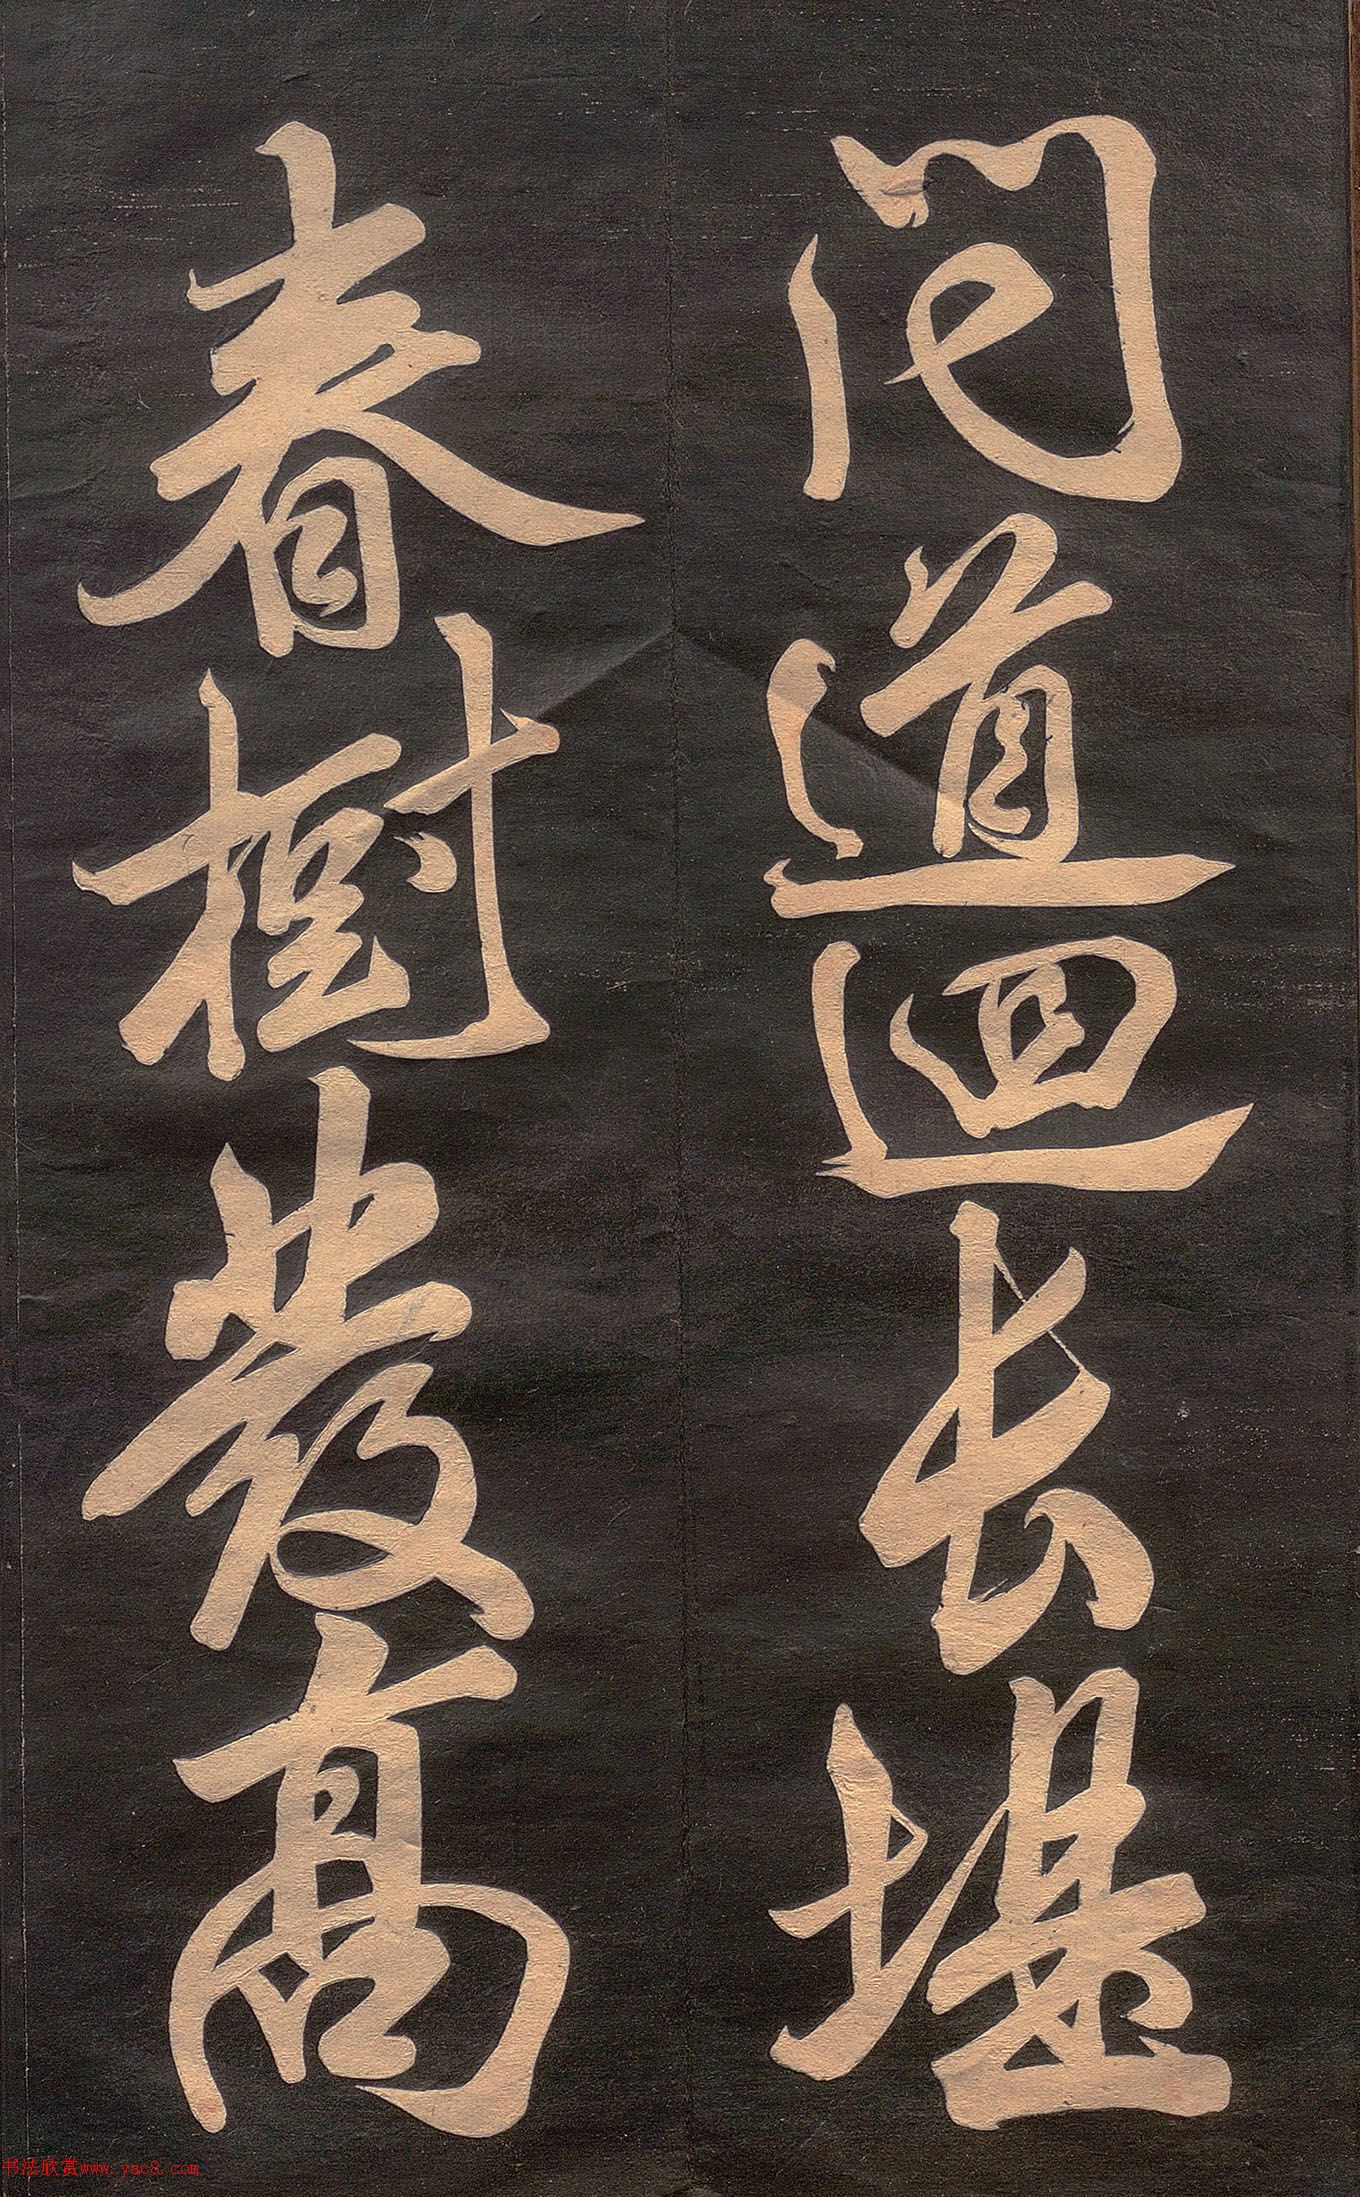 问道迴长堤
春樹發高
书法欣赏www.yac8.com